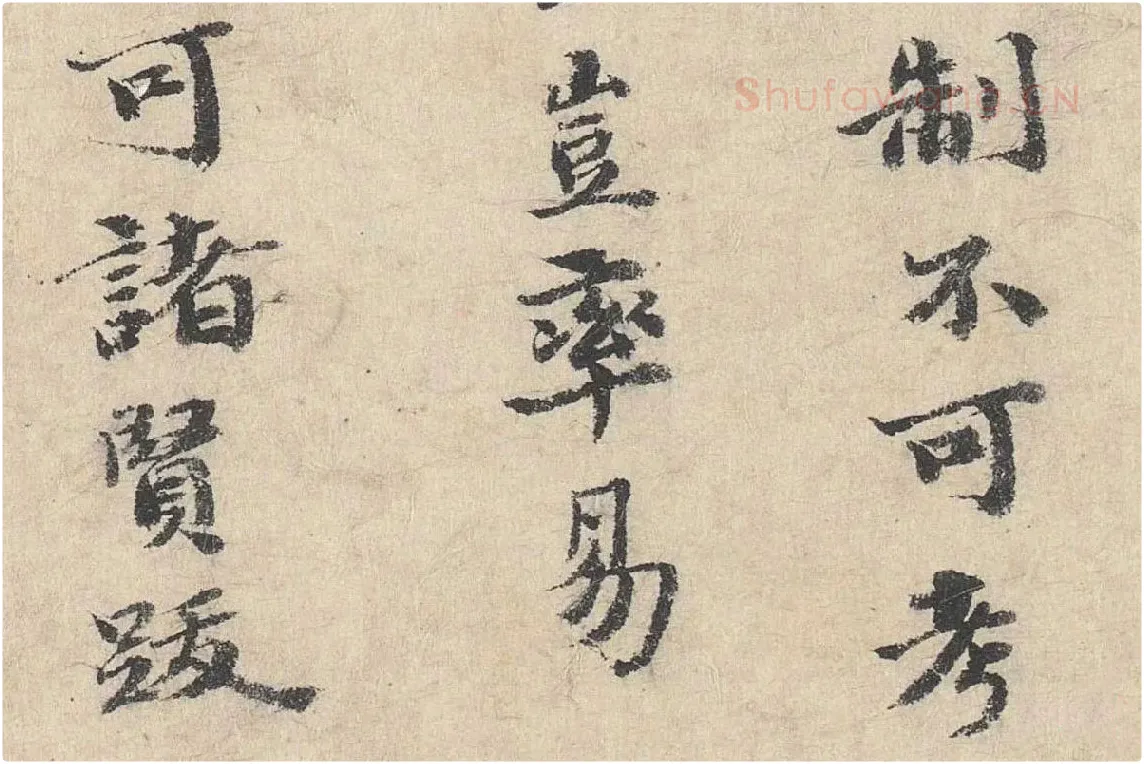 制不可考
豈率易
可諸賢跋
ShufaWang.CN